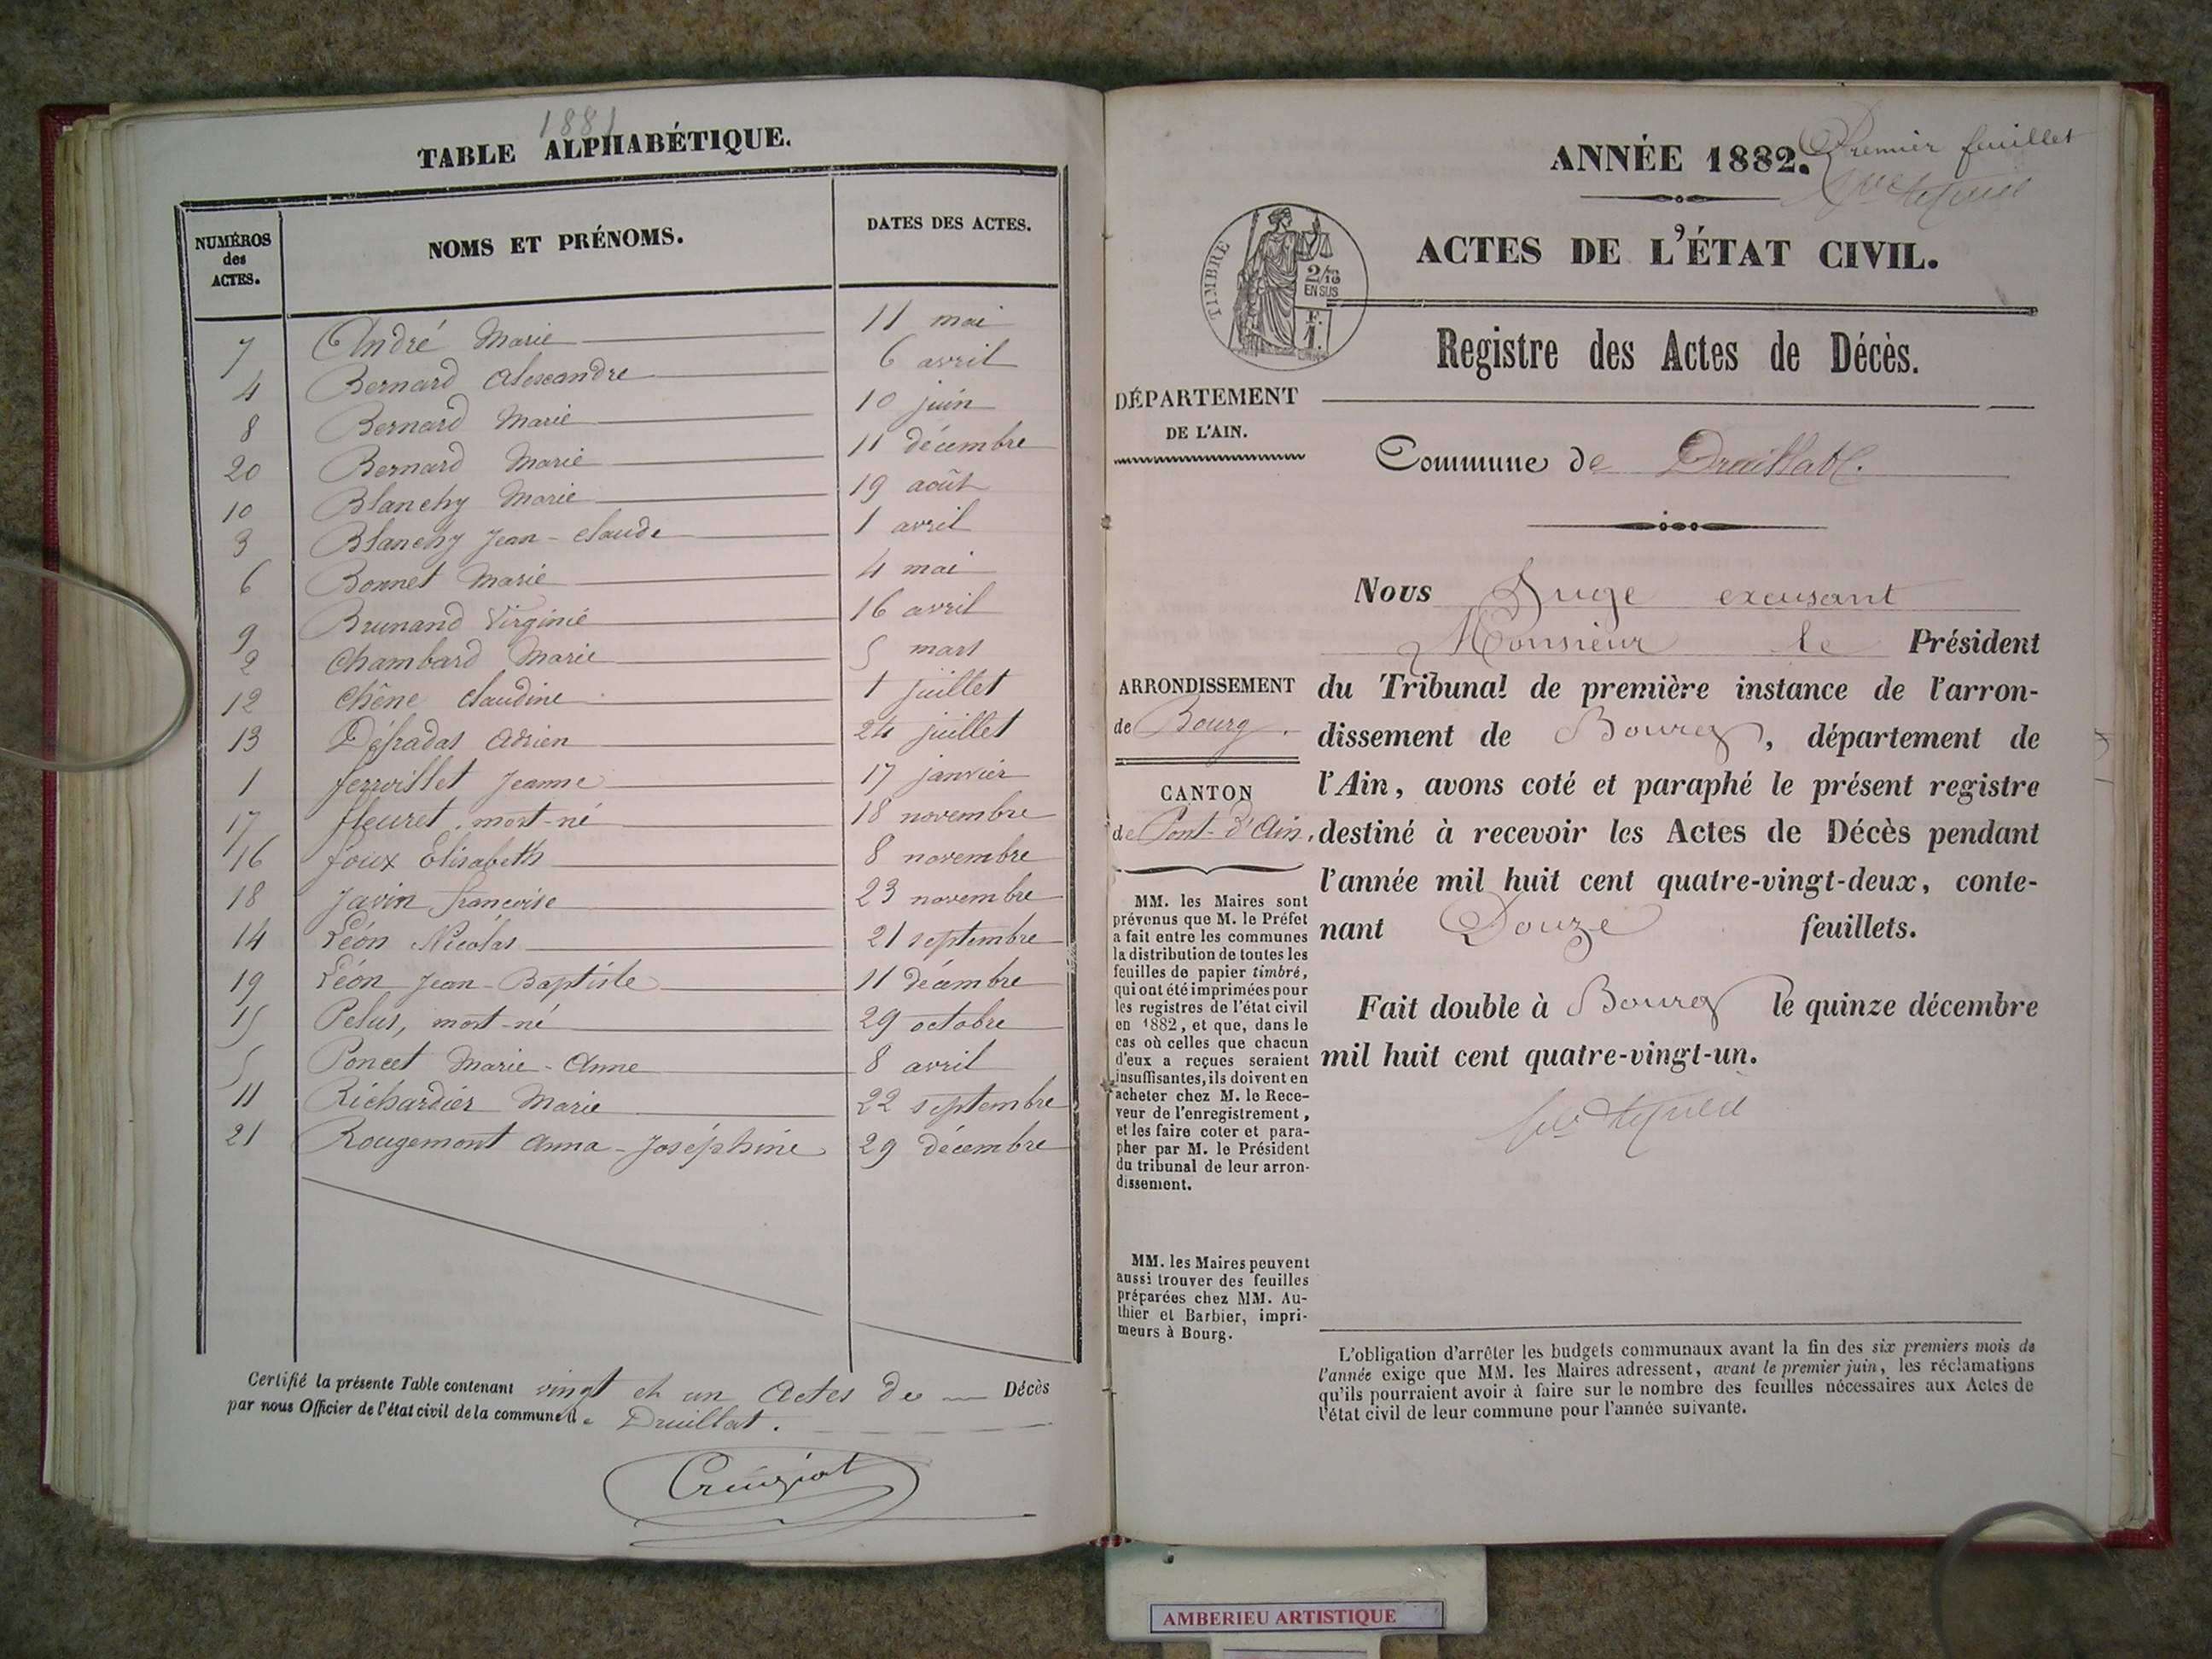 1881
TABLE ALPHABÉTIQUE.
NUMÉROS des ACTES. NOMS ET PRÉNOMS. DATES DES ACTES.
7 André Marie 11 mai
4 Bernard Alexandre 6 avril
8 Bernard Marie 10 juin
20 Bernard Marie 11 décembre
10 Blanchy Marie 19 août
3 Blanchy Jean-Claude 1 avril
6 Bonnet Marie 4 mai
9 Brunand Virginie 16 avril
2 Chambard Marie 5 mars
12 Chêne Claudine 1 juillet
13 Défradas Adrien 24 juillet
1 ferroillet Jeanne 17 janvier
17 fleuret, mort-né 18 novembre
16 foux Elisabeth 8 novembre
18 Javin françoise 23 novembre
14 Léon Nicolas 21 septembre
19 Léon Jean-Baptiste 11 décembre
15 Pelus, mort-né 29 octobre
5 Poncet Marie-Anne 8 avril
11 Richardier Marie 22 septembre
21 Rougemont Anna-Joséphine 29 décembre
Certifié la présente Table contenant vingt et un Actes de Décès
par nous Officier de l'état civil de la commune de Druillat.
Creuziat
Premier feuillet
ANNÉE 1882.
ACTES DE L'ÉTAT CIVIL.
TIMBRE
2/10
EN SUS
F.
1.
Registre des Actes de Décès.
DÉPARTEMENT
DE L'AIN.
Commune de Druillat.
Nous Juge excusant
Monsieur le Président
ARRONDISSEMENT
de Bourg.
du Tribunal de première instance de l'arron-
dissement de Bourg, département de
l'Ain, avons coté et paraphé le présent registre
destiné à recevoir les Actes de Décès pendant
l'année mil huit cent quatre-vingt-deux, conte-
nant Douze feuillets.
Fait double à Bourg le quinze décembre
mil huit cent quatre-vingt-un.
CANTON
de Pont-d'Ain.
MM. les Maires sont
prévenus que M. le Préfet
a fait entre les communes
la distribution de toutes les
feuilles de papier timbré,
qui ont été imprimées pour
les registres de l'état civil
en 1882, et que, dans le
cas où celles que chacun
d'eux a reçues seraient
insuffisantes, ils doivent en
acheter chez M. le Rece-
veur de l'enregistrement,
et les faire coter et para-
pher par M. le Président
du tribunal de leur arron-
dissement.
MM. les Maires peuvent
aussi trouver des feuilles
préparées chez MM. Au-
thier et Barbier, impri-
meurs à Bourg.
L'obligation d'arrêter les budgets communaux avant la fin des six premiers mois de
l'année exige que MM. les Maires adressent, avant le premier juin, les réclamations
qu'ils pourraient avoir à faire sur le nombre des feuilles nécessaires aux Actes de
l'état civil de leur commune pour l'année suivante.
AMBERIEU ARTISTIQUE